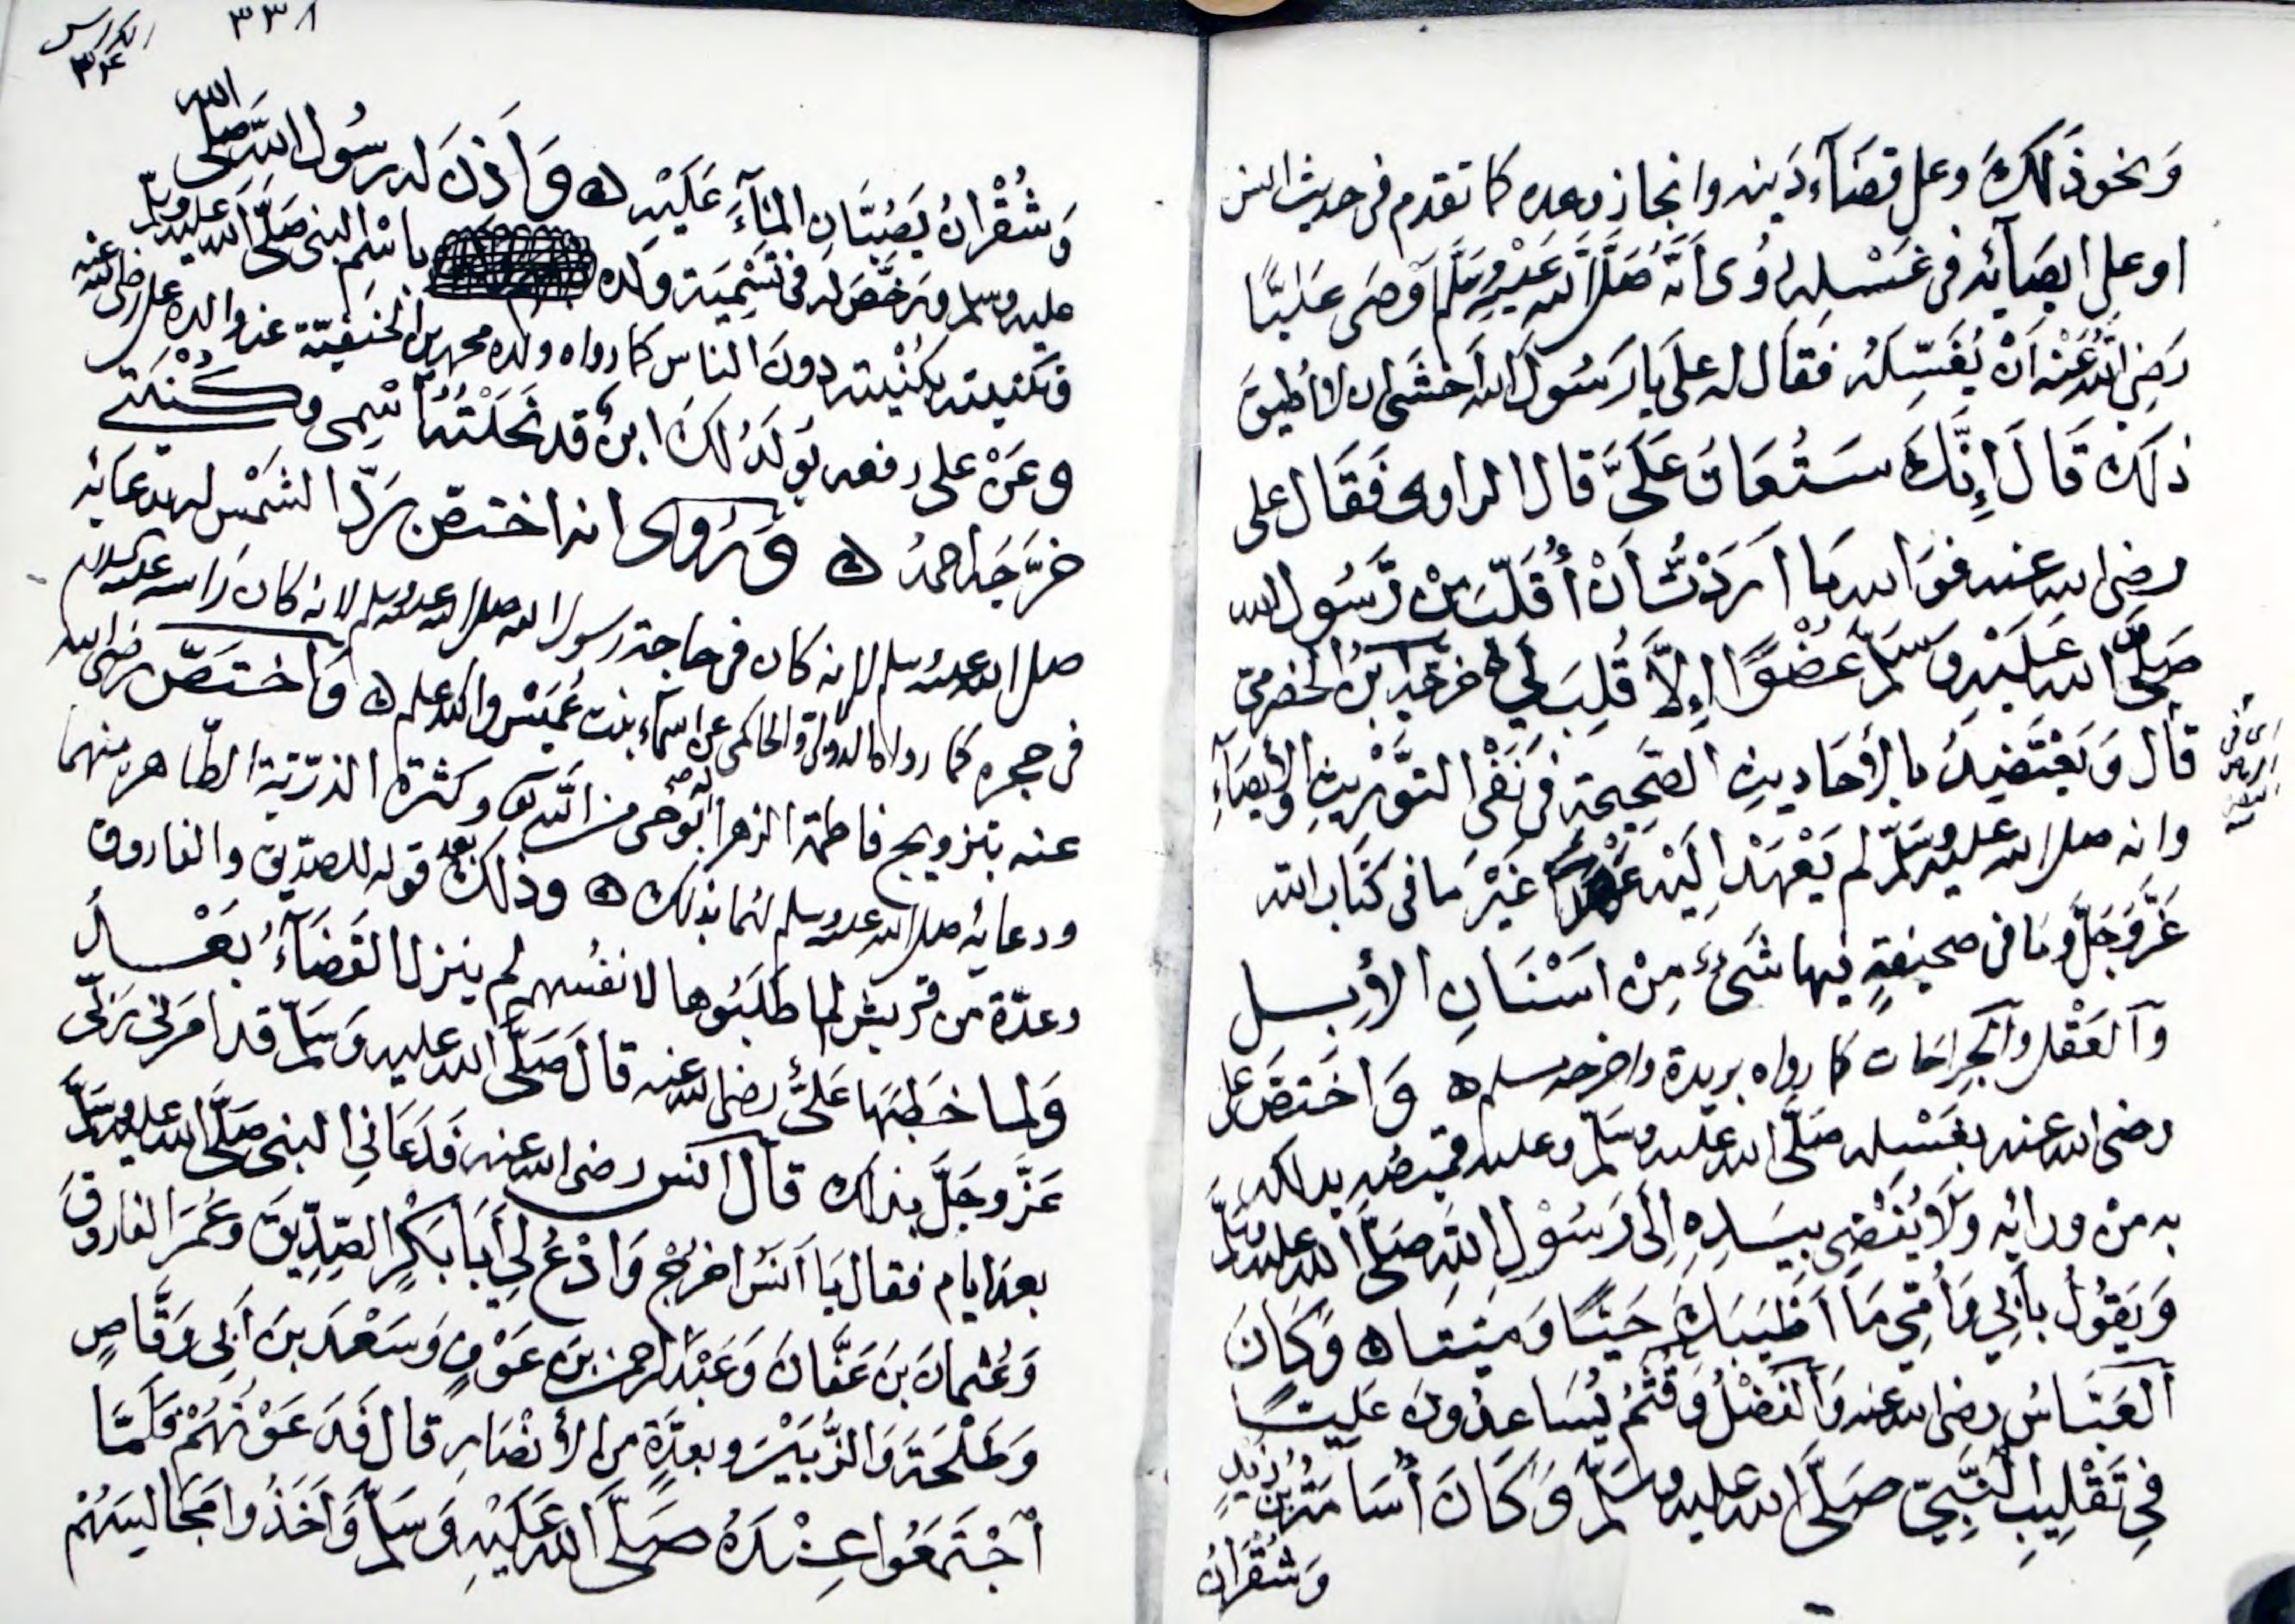 وَنحو ذَلكَ وعلى قضَآء دَينه وانجاز وعده كما تقدم فى حديث انس
او على ايصَآئه فى غسْله لما رُوى اَنّهُ صَلَّى اللّه عَلَيْهِ وسَلَّم اَوصَى عَليًّا
رَضِيَ اللّهُ عَنْه اَنْ يُغَسّلَهُ فقَال له علي يا رَسُولَ الله اَخشَى ان لا اُطيقَ
ذلكَ قَالَ إِنَّكَ سَتُعَانُ عَلَيَّ قال الراوى فَقَال على
رضى الله عنه فوَالله مَا اَرَدْتُ اَنْ أُقَلّبَ مِنْ رَّسُول الله
صَلَّى الله عَلَيْهِ وَسَلَّم عُضْوًا إِلاَّ قُلِبَ لِي خرجه ابن الحضرمى
قال وَيَعْتَضِدُ بالأَحَاديثِ الصَّحِيحَةِ فى نَفْىِ التَّوْرِيثِ والأيصَآءِ
وانه صلى الله عليه وسَلَّم لم يَعْهَدْ اِلَيْهِ غَيْرَ مَا فى كتَاب الله
عَزَّوَجَلَّ وَمَا فى صحيفةٍ فيها شَىْءٌ مِنْ اَسْنَانِ الأبِل
وَالعَقْل والجِرَاحَات كما رواه بريدة واخرجه مسلم ه وَاختصَّ على
رضى الله عنه بغَسْله صَلَّى الله عليه وسَلَّم وعليه قميصُه يدلكه
به مِنْ ورائه وَلاَ يُفْضِى بيَدِهِ اِلَى رَسُوْلِ اللهِ صَلَّى الله عليه وسَلَّم
وَيَقُوْلُ بأَبِي وَأُمّي مَا اَطْيَبَكَ حَيًّا وَمَيّتا ه وَكَانَ
اَلعَبَّاسُ رضى الله عنه وَالفَضْلُ وَقُثَمُ يُسَاعِدُونَ عَلِيًّا
فِي تَقْلِيبِ النَّبِيّ صَلَّى الله عليه وسَلَّم وَكَانَ أُسَامَةُ بنُ زَيْدٍ
وَشُقْرَانُ
٣٣٨
الكراس
٣٤
وَشُقْرَانُ يَصُبَّانِ المَآءَ عَلَيْهِ ه وَاَذِنَ له رسُول اللهِ صَلَّى الله
عليه وسلم وَرَخَّصَ له فى تَسْمِيَة وَلَده باسْمِ النبى صَلَّى الله عليه وسلم
وتكنيته بكُنْيته دونَ الناس كما رواه ولده محمد بن الحنفيّة عن والده على رضى الله عنه
وعَنْ على رفعه يُولَدُ لكَ ابنٌ قد نَحَلْتُهُ اسْمِى وكُنْيَتِي
خرَّجَه احمدُ ه وَرُوى انه اختصّ بَردّ الشَّمْس له بدعَائه
صلى الله عليه وسلم لانه كان فى حاجة رسول الله صلى الله عليه وسلم لانه كان رَاسه عليه السلام
فى حجره كما رواه الدولابى والحاكمى عن اسمآء بنت عُمَيْس والله اعلم ه وَاختَصّ رضى الله
عنه بتزويج فاطمة الزهرا بوَحى من اللّهِ وكثرة الذرّيّة الطّاهره منهما
ودعائه صلى الله عليه وسلم لهُما بذلك ه وذلك بعد قوله للصدّيق والفاروق
وعدّة من قريش لما طَلَبُوها لانفُسهم لم ينزل القَضَآءُ بَعْدُ
وَلما خَطَبَهَا عَلىٌّ رضى الله عنه قالَ صَلَّى الله عليه وَسَلَّم قد امَرَنى رَبّى
عَزَّ وجَلَّ بذلك قال انس رضى الله عنه فَدَعَانى النبى صَلَّى الله عليه وسلَّم
بعد ايام فقال يَا اَنَسُ اخرُجْ وَادْعُ لِي أَبَا بَكْرٍ الصِّدِّيقَ وعُمَرَ الفاروقَ
وَعُثمانَ بنَ عَفَّانَ وَعَبْدَ الرحمن بنَ عَوْفٍ وَسَعْدَ بنَ أَبِى وَقَّاصٍ
وَطَلْحَةَ وَالزُّبَيْرَ وبعِدَّةٍ من الأَنْصَارِ قال فَدَعَوْتُهُمْ فَلَمَّا
اَجْتَمَعُوا عِنْدَهُ صَلَّى الله عَلَيْهِ وَسَلَّم وَاَخَذُوا مَجَالِسَهُمْ